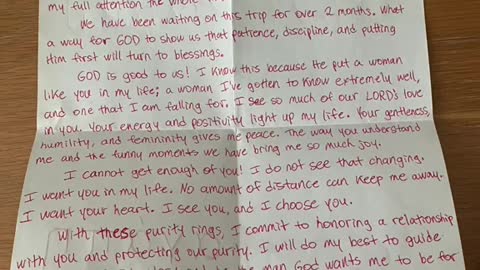 my full attention the whole
We have been waiting on this trip for over 2 months. What
a way for GOD to show us that patience, discipline, and putting
Him first will turn to blessings.
GOD is good to us! I know this because He put a woman
like you in my life; a woman I've gotten to know extremely well,
and one that I am falling for. I see so much of our LORD's love
in you. Your energy and positivity light up my life. Your gentleness,
humility, and femininity gives me peace. The way you understand
me and the funny moments we have bring me so much joy.
I cannot get enough of you! I do not see that changing.
I want you in my life. No amount of distance can keep me away.
I want your heart. I see you, and I choose you.
With these purity rings, I commit to honoring a relationship
with you and protecting our purity. I will do my best to guide
the man God wants me to be for